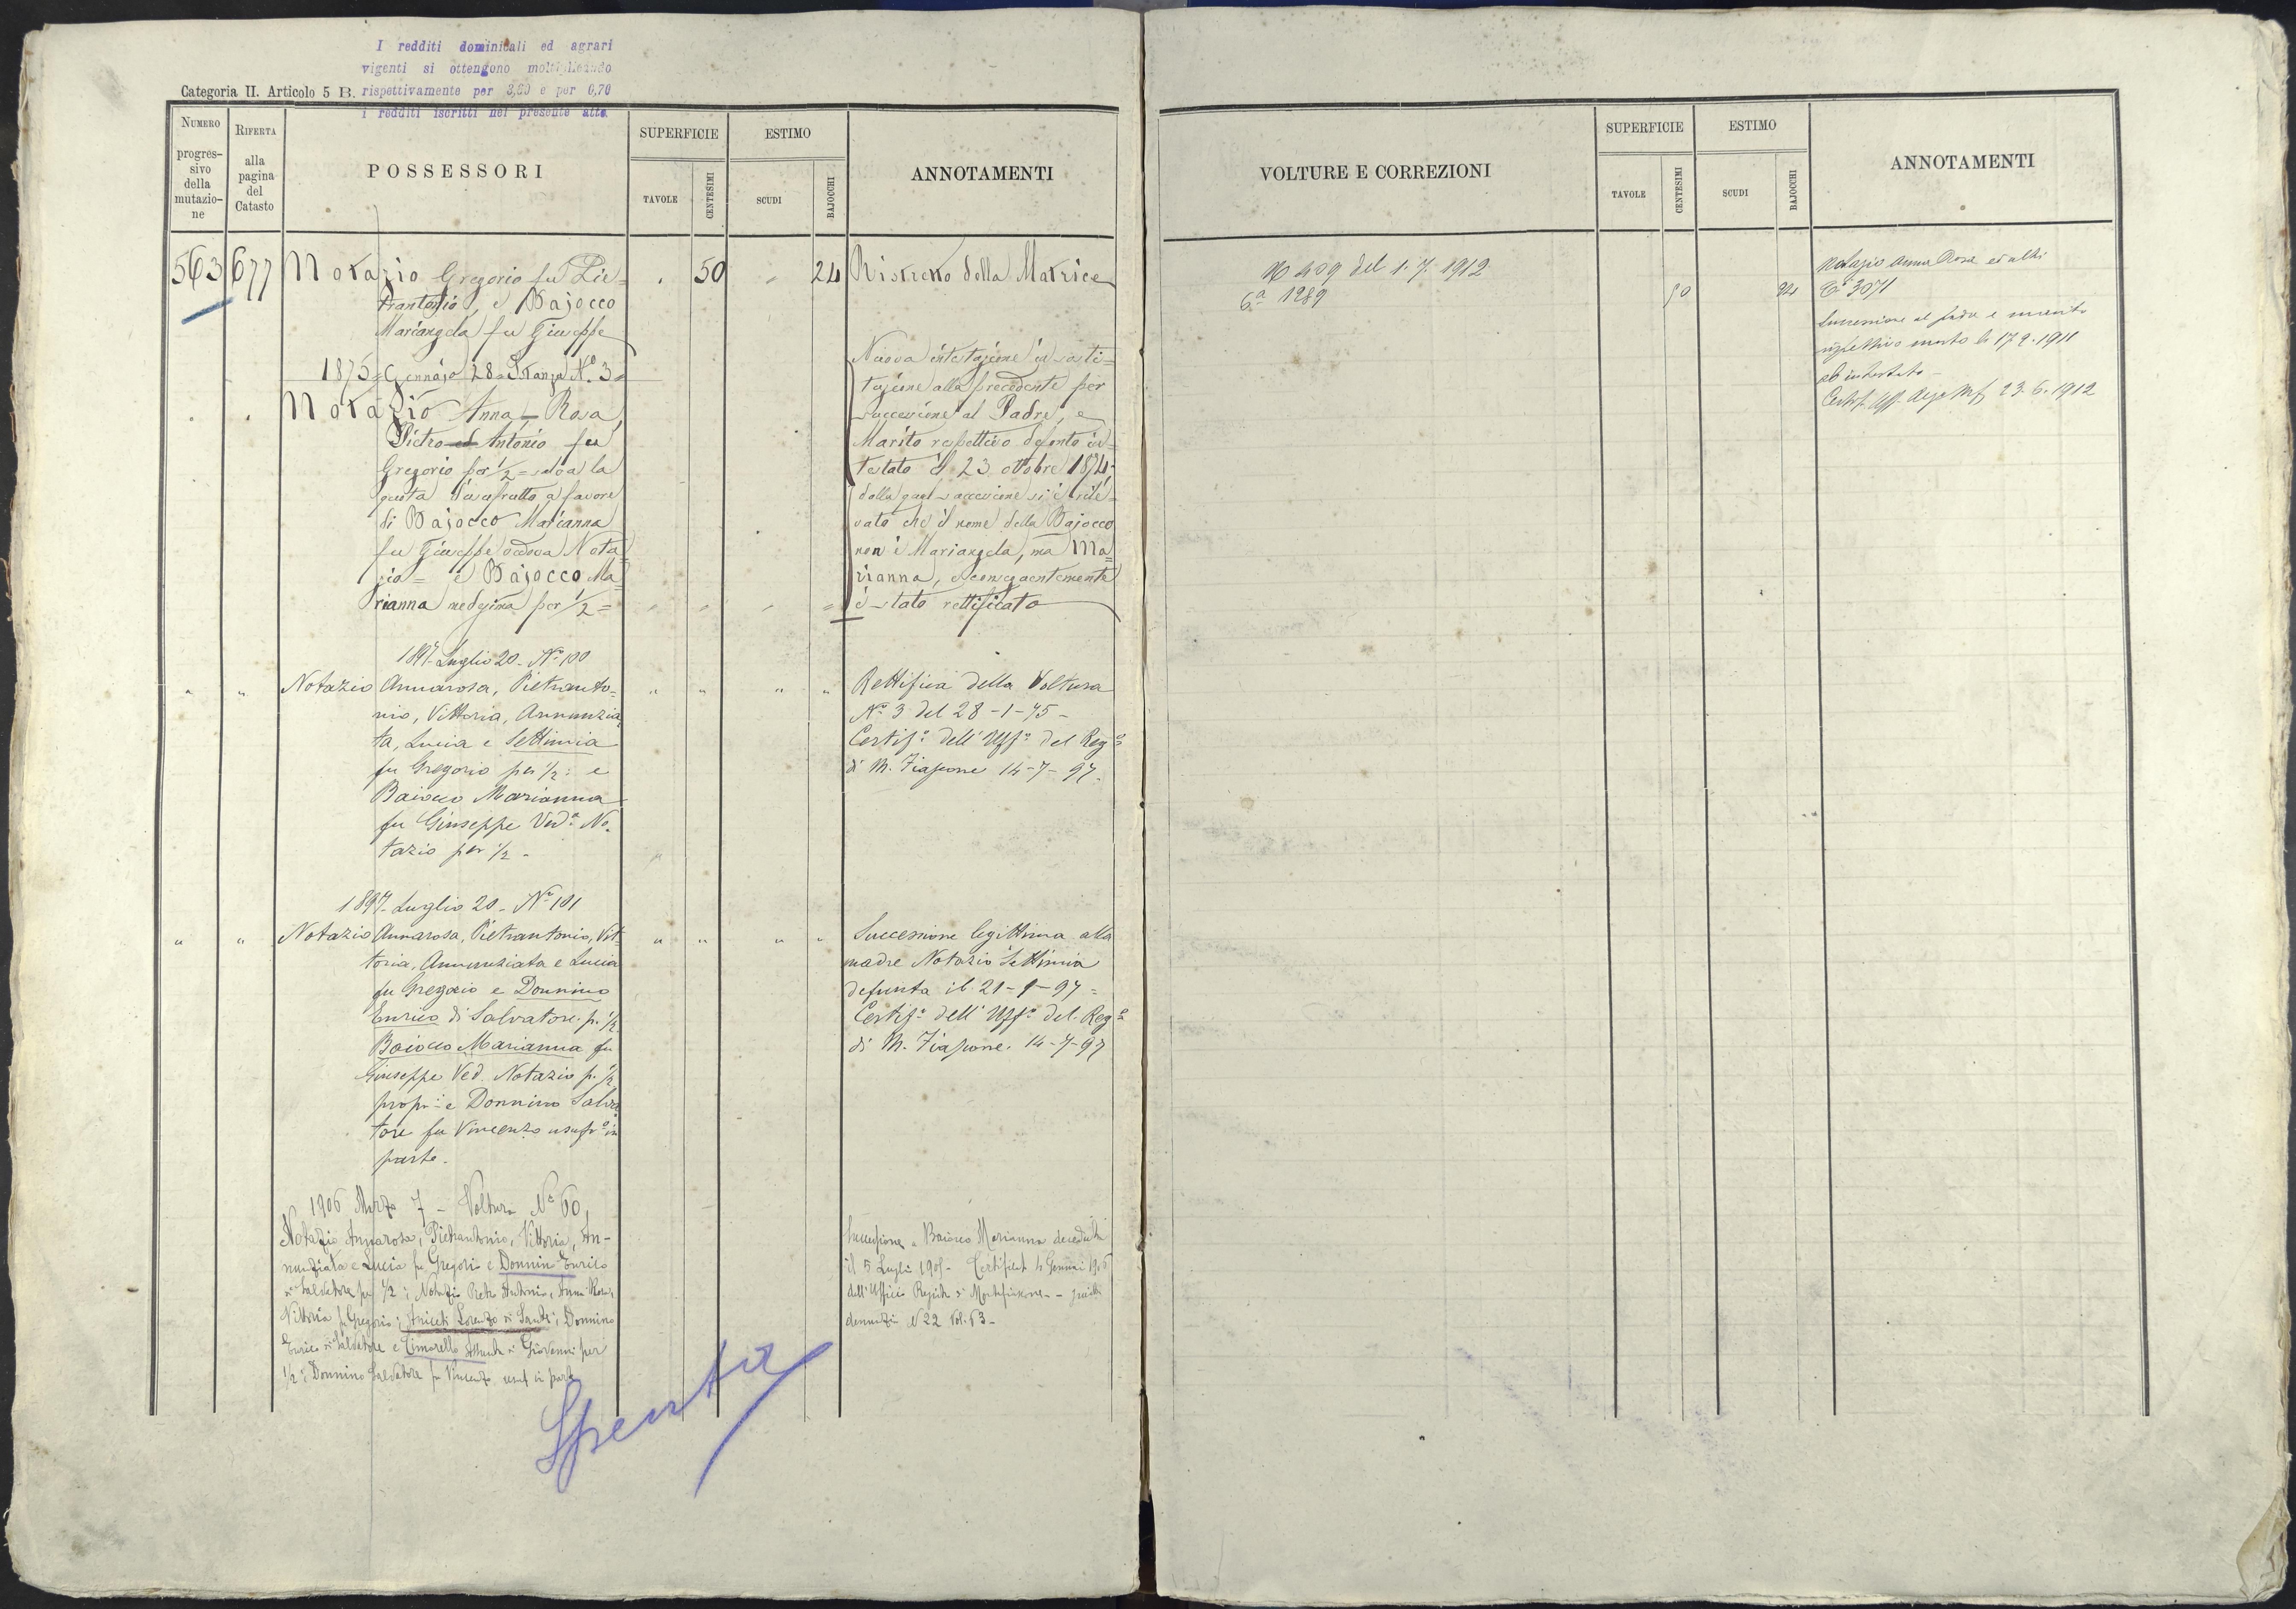 I redditi dominicali ed agrari
vigenti si ottengono moltiplicando
rispettivamente per 3,60 e per 0,70
i redditi iscritti nel presente atto.
Categoria II. Articolo 5 B.
NUMERO progressivo della mutazione
RIFERTA alla pagina del Catasto
POSSESSORI
SUPERFICIE
TAVOLE
CENTESIMI
ESTIMO
SCUDI
BAJOCCHI
ANNOTAMENTI
563 677 Notazio Gregorio fu Pie=
trantonio, e Bajocco
Mariangela fu Giuseppe
. 50 " 24 Ristretto della Matrice
1875=Gennajo 28=Stanza N.º 3=
Notazio Anna-Rosa,
Pietro ed Antonio fu
Gregorio per 1/2= salva la
quota d'usufrutto a favore
di Bajocco Marianna
fu Giuseppe vedova Nota=
zio= e Bajocco Ma=
rianna medesima per 1/2=
Nuova intestazione in sosti=
tuzione alla precedente per
successione al Padre, e
Marito respettivo defonto in=
testato il 23 ottobre 1874-
dalla qual successione si è rile=
vato che il nome della Bajocco
non è Mariangela, ma Ma=
rianna, e conseguentemente
è stato rettificato
1897. Luglio 20 - Nº 100
" " Notazio Annarosa, Pietranto=
nio, Vittoria, Annunzia=
ta, Lucia e Settimia
fu Gregorio per 1/2: e
Baiocco Marianna
fu Giuseppe Vedª No=
tazio per 1/2 -
" " " " Rettifica della Voltura
Nº 3 del 28-1-75-
Certifº dell'Uffº del Regº
di M. Fiascone 14-7-97.
1897. Luglio 20 - Nº 101
" " Notazio Annarosa, Pietrantonio, Vit=
toria, Annunziata e Lucia
fu Gregorio e Donnino
Enrico di Salvatore p. 1/2
Baiocco Marianna fu
Giuseppe Ved. Notazio p. 1/2
propri: e Donnino Salva
tore fu Vincenzo usufrº in
parte.
" " " " Successione legittima alla
madre Notazio Settimia
defunta il 21-1-97=
Certifº dell'Uffº del Regº
di M. Fiascone. 14-7-97
1906 Marzo 7 - Voltura Nº 60
Notazio Annarosa, Pietrantonio, Vittoria, An-
nunziata e Lucia fu Gregorio e Donnino Enrico
di Salvatore per 1/2; Notazio Pietro Antonio, Anna Rosa,
Vittoria fu Gregorio; Aniceti Lorenzo di Santi; Donnino
Enrico di Salvatore e Cimarello Assunta di Giovanni per
1/2; Donnino Salvatore fu Vincenzo usuf. in parte
Successione a Baiocco Marianna deceduta
il 5 Luglio 1905 - Certificato 4 Gennaio 1906
dell'Ufficio Registro di Montefiascone -
denunzia N 22 Vol. 63 -
Spenta
VOLTURE E CORREZIONI
SUPERFICIE
TAVOLE
CENTESIMI
ESTIMO
SCUDI
BAJOCCHI
ANNOTAMENTI
N 409 del 1.7.1912
6ª 1289
50 24
Notazio Anna Rosa ed altri
Cª 3071
Successione al padre e marito
rispettivo morto li 17.9.1911
ab intestato -
Certif. Uff. Reg. Mf. 23.6.1912